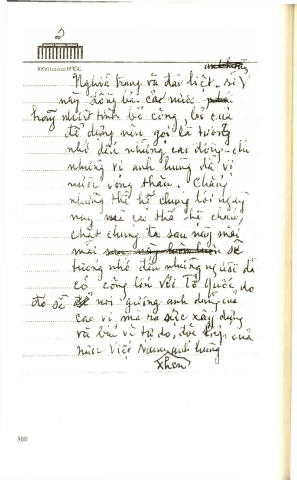 XXVI съезд КПСС
Nghĩa trang và đài liệt sĩ
này đồng bào các nước
hãy nhiệt tình bỏ công, bỏ của
để dựng nên gọi là tưởng
nhớ đến những các đồng-chí
những vị anh hùng đã vì
nước vong thân. Chẳng
những thế hệ chúng tôi ngày
nay mà cả thế hệ cháu,
chắt chúng ta sau này mãi
mãi sẽ
tưởng nhớ đến những người đã
có công lớn với Tổ Quốc do
đó sẽ noi gương anh dũng của
các vị mà ra sức xây dựng
và bảo vệ tự do, độc lập của
nước Việt Nam anh hùng
300